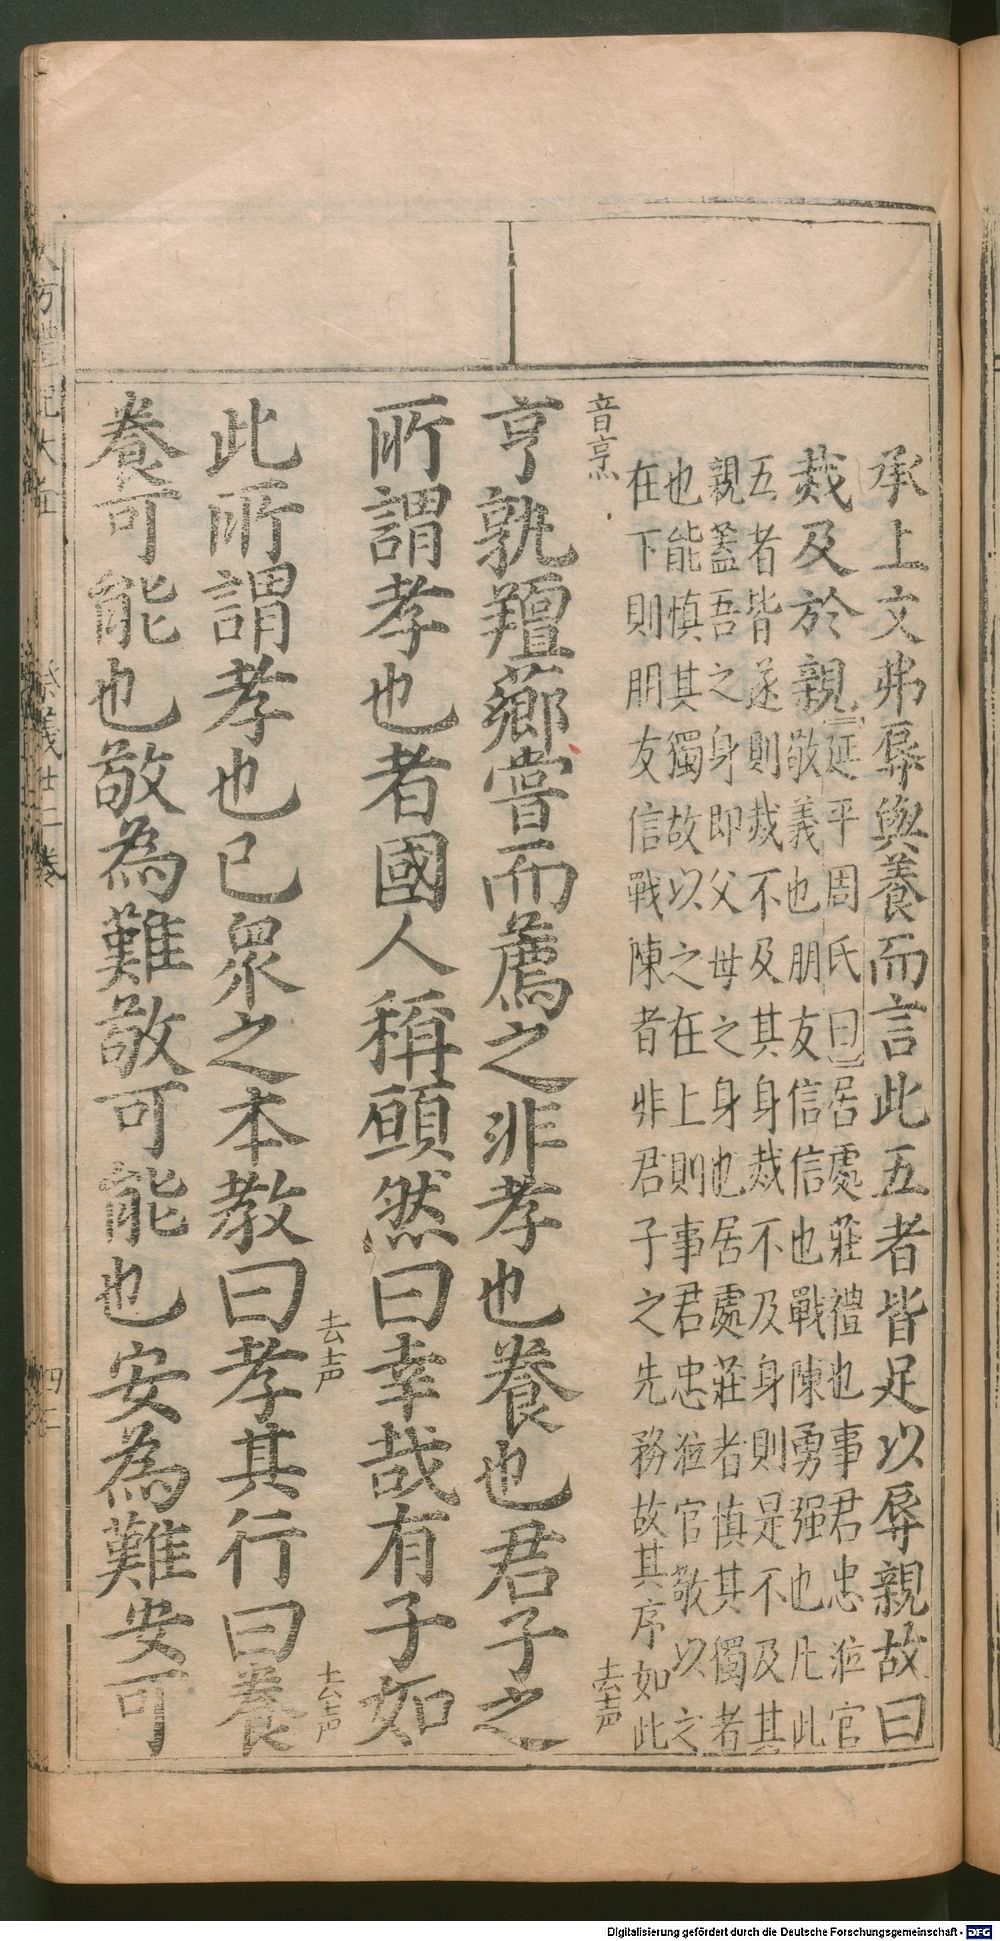 承上文弗辱與養而言此五者皆足以辱親故曰
烖及於親
【延平周氏曰】居處莊禮也事君忠涖官
敬義也朋友信信也戰陳勇强也凡此
五者皆遂則烖不及其身烖不及身則是不及其
親蓋吾之身即父母之身也居處莊者慎其獨者
也能慎其獨故以之在上則事君忠涖官敬以之
在下則朋友信戰陳者非君子之先務故其序如此
音亨烹
去声
亨孰羶薌嘗而薦之非孝也養也君子之
所謂孝也者國人稱願然曰幸哉有子如
去声
去声
此所謂孝也已眾之本教曰孝其行曰養
養可能也敬為難敬可能也安為難安可
方禮記大全
祭義廿二卷
Digitalisierung gefördert durch die Deutsche Forschungsgemeinschaft - DFG